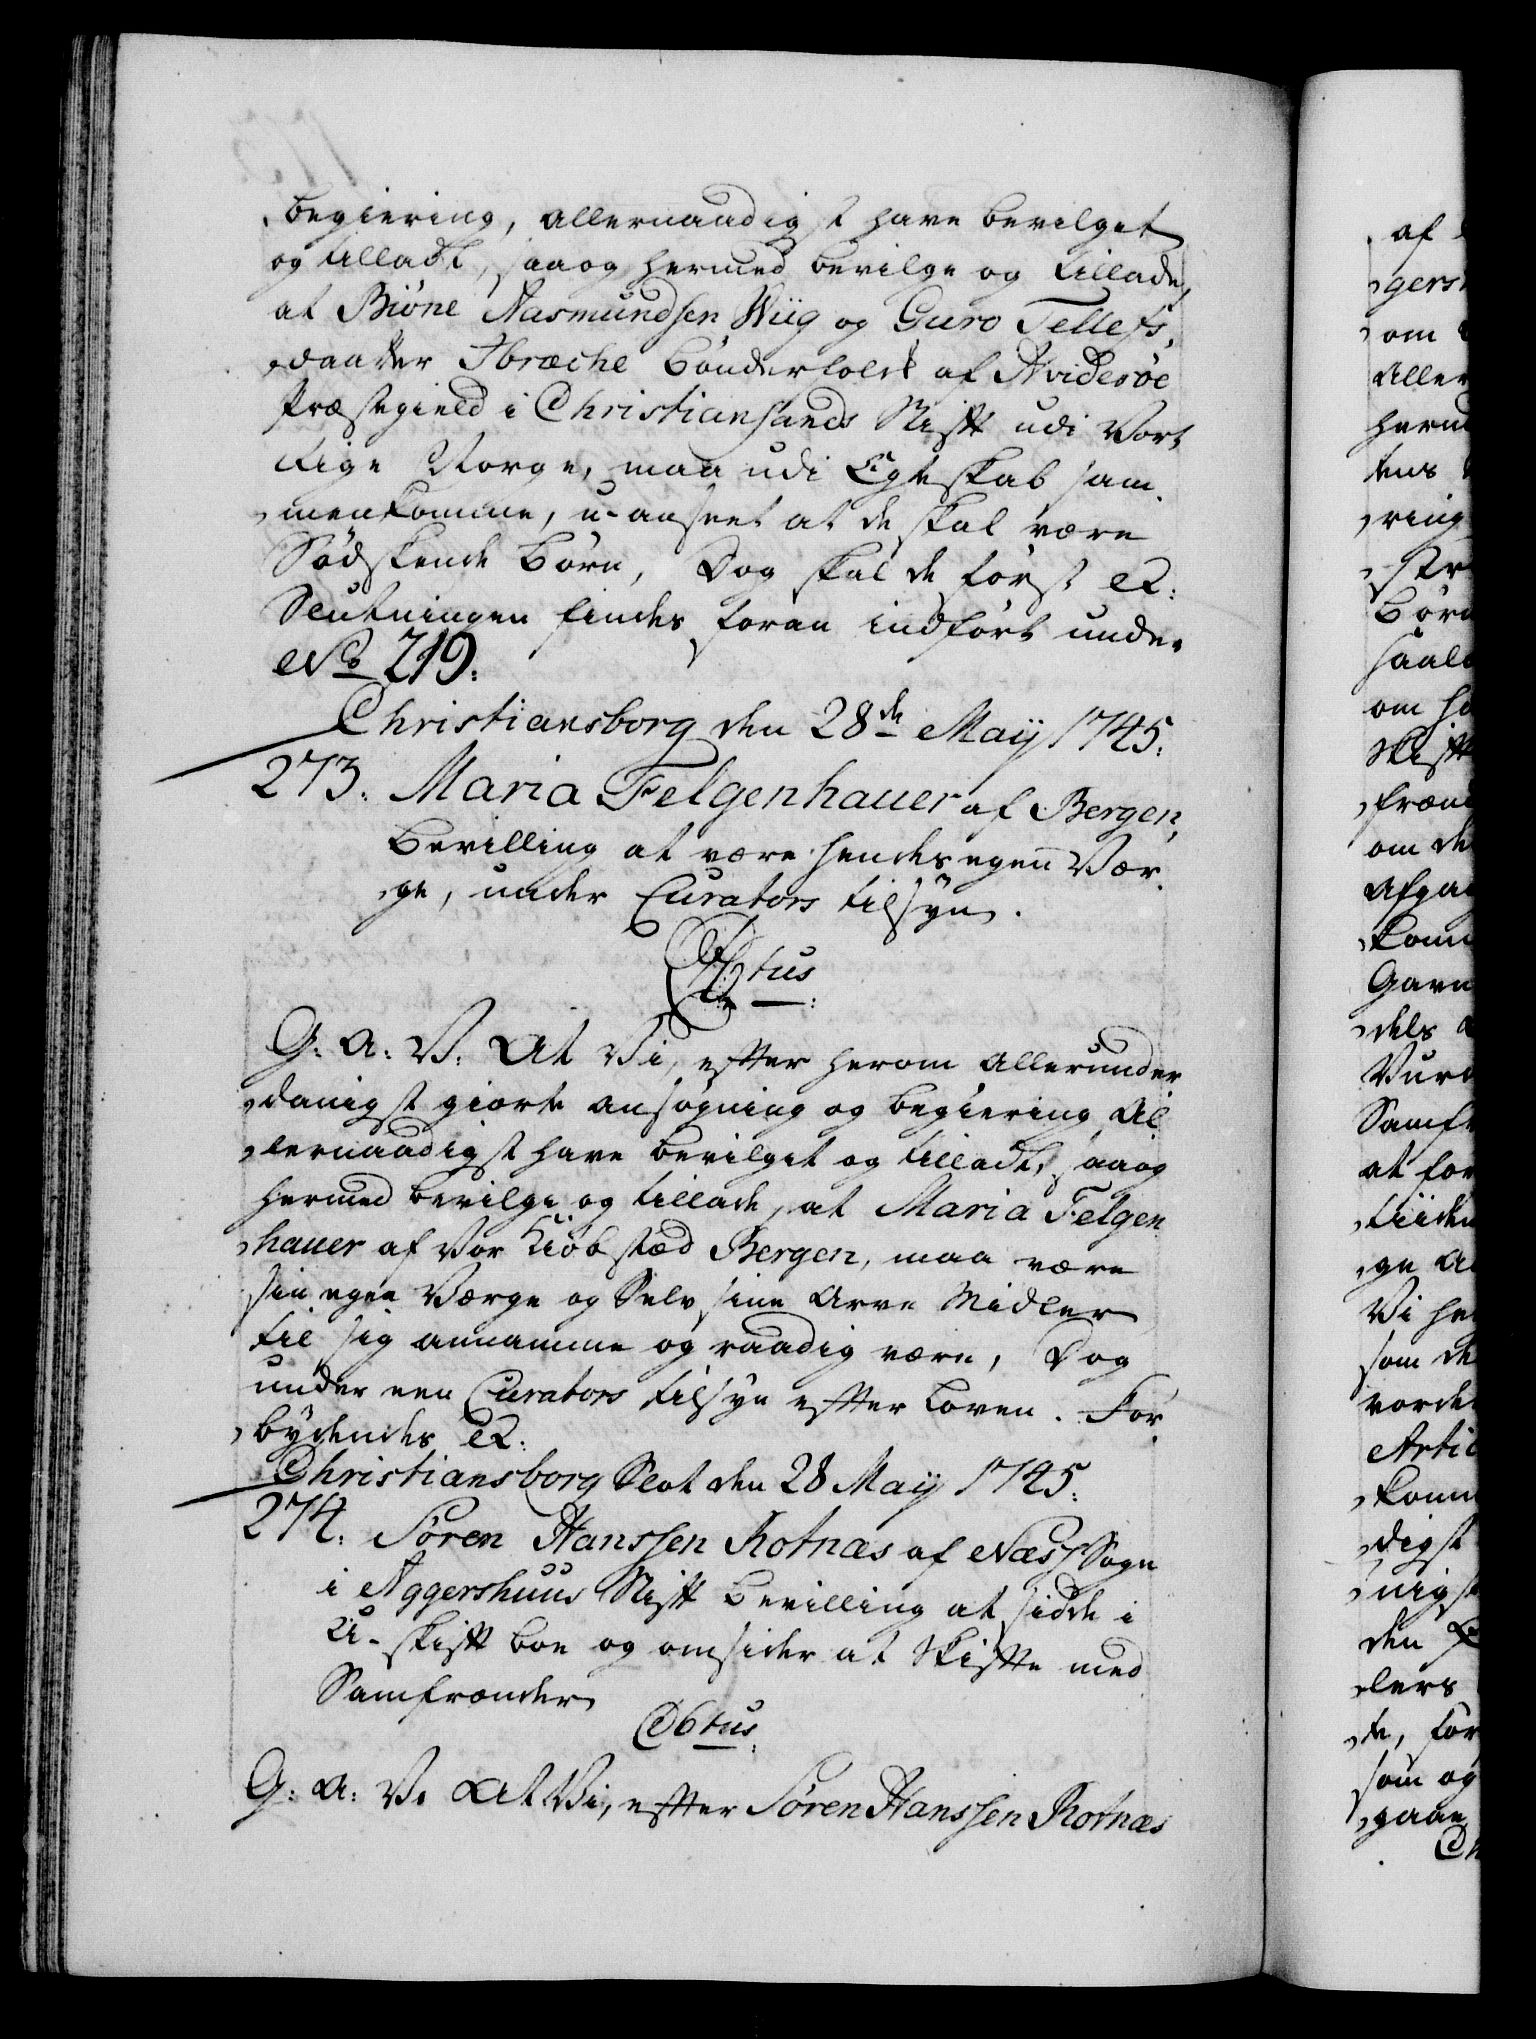 begiering, allernaadigst have bevilget
og tilladt, saa og hermed bevilge og tillade,
at Biöne Aasmundsen Wiig og Guro Tellefs,
daatter Ibræche Bönderfolck af Hvidesöe
Præstegield i Christiansands Stift udi Vort
Rige Norge, maa udi Egteskab sam,
menkomme, u-anseet at de skal være
Södskende Börn, Dog skal de först &c:
Slutningen findes foran indfört under
No 219:
Christiansborg den 28de Maij 1745:
273: Maria Felgenhauer af Bergen,
Bevilling at være hendes egen Vær,
ge, under Curators tilsyn.
Obtus:
G: A: V: At Vi, efter herom allerunder
danigst giorde ansögning og begiering Al
lernaadigst have bevilget og tilladt, saa og
hermed bevilge og tillade, at Maria Felgen
hauer af Vor Kiöbstæd Bergen, maa være
sin egen Værge og Selv sine Arve Midler
til sig annamme og raadig være, Dog
under een Curators tilsyn efter Loven. For,
bydendes &c:
Christiansborg Slot den 28 Maij 1745:
274: Sören Hanssen Rotnæs af Næss Sogn
i Aggershuus Stift Bevilling at sidde i
U-skift boe og omsider at Skifte med
Samfrænder
Obtus:
G: A: V: At Vi, efter Sören Hanssen Rotnæs
af
gers
om
Aller
herm
tens
ring
Börn
saale
om
Skift
frænd
om de
Afga
komm
Gavn
dels
Vur
Samf
at for
tiiden
ge
Vi he
som de
vorde
Artic
komm
digst
nigst
den
lers
de, for
som og
gaae
Ch